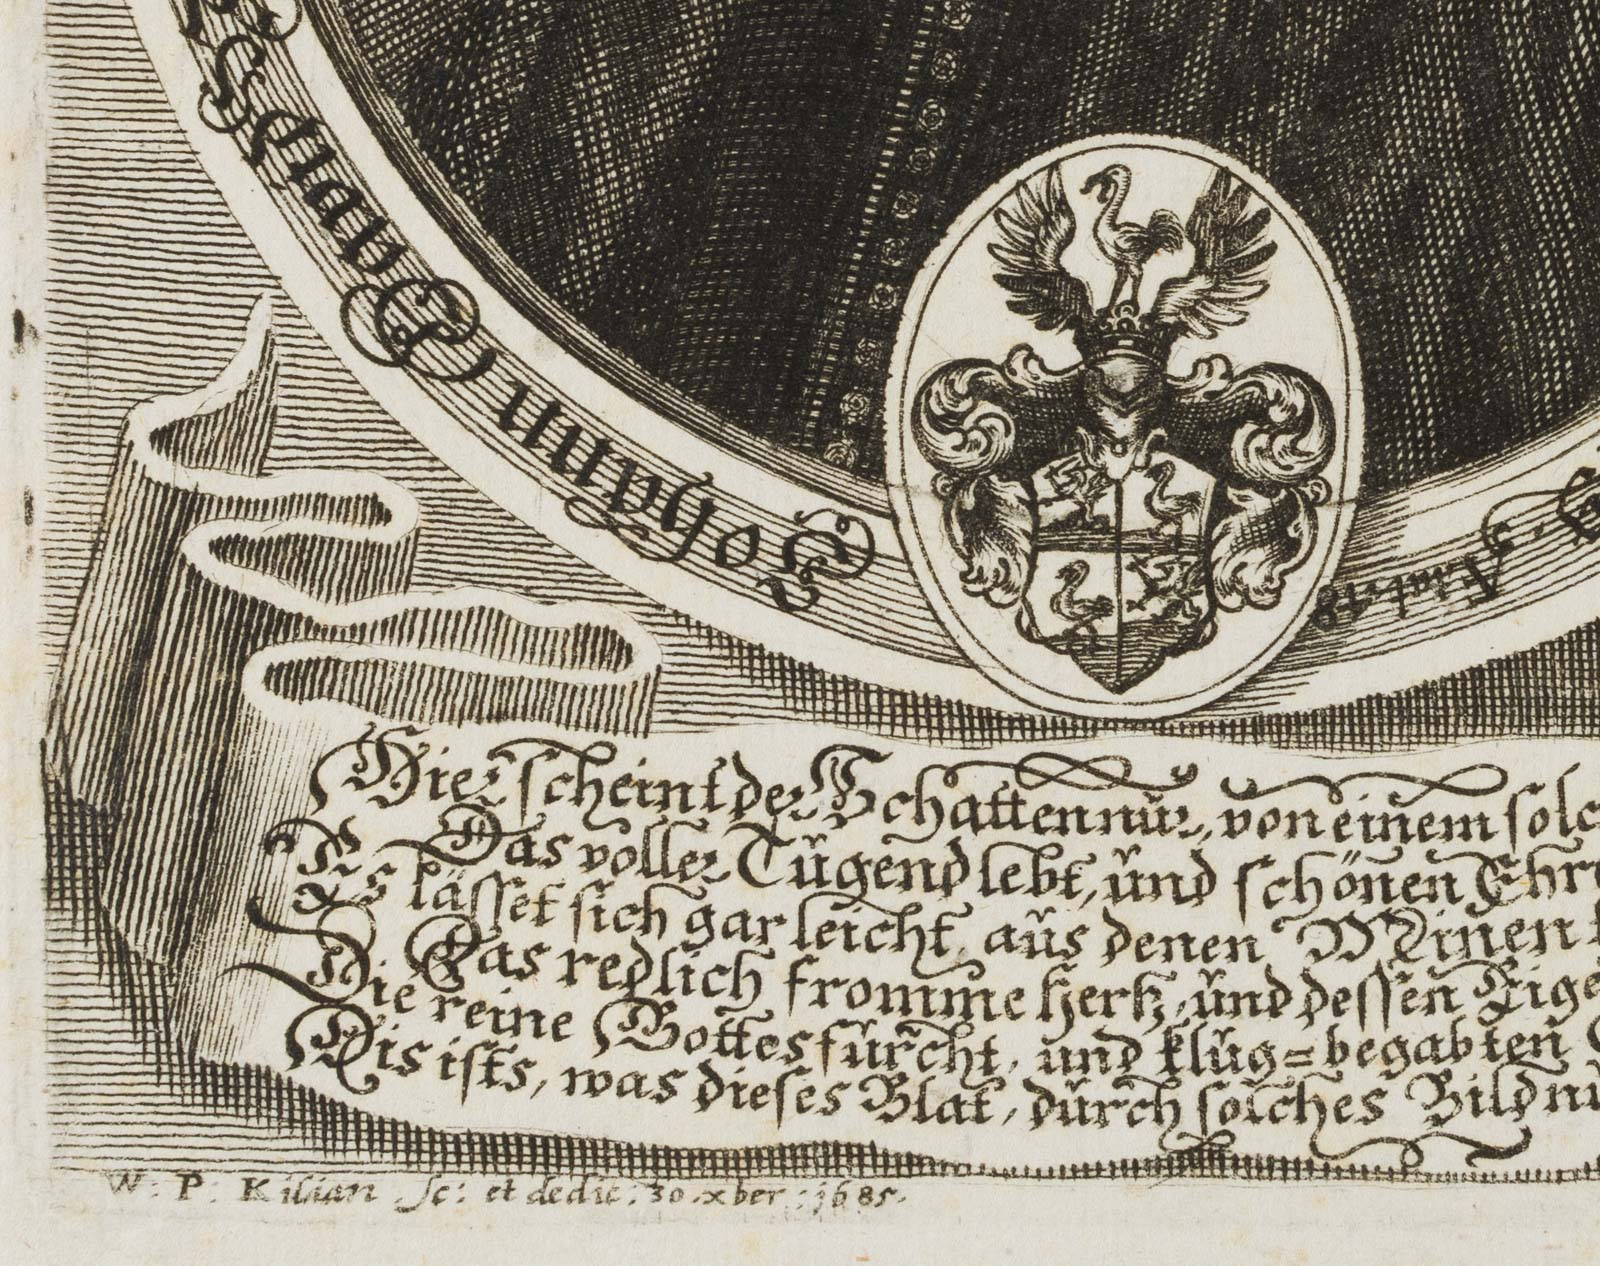 Johann David Sch
Ætat. 48.
Hier scheint der Schatten nur, von einem solc
Das voller Tugend lebt, und schönen Ehre
Es lässet sich gar leicht, aus denen Minen
Das redlich fromme Hertz, und dessen Eige
Die reine Gottesfurcht, und klug=begabten
Dis ists, was dieses Blat, durch solches Bildnu
W: P: Kilian. sc: et dedic: 30. xber: 1685.